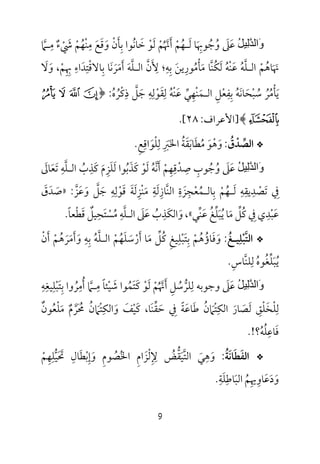 وَالدَّلِيلُ عَلَى وُجُوبِهَا لَـهُـمْ أَنَّهُمْ لَوْ خَانُوا بِأَنْ وَقَعَ مِنْهُمْ شَيْءٌ مِـمَّا
نَهَاهُمُ الـلَّهُ عَنْهُ لَكُنَّا مَأْمُورِينَ بِهِ؛ لِأَنَّ الـلَّهَ أَمَرَنَا بِالِاقْتِدَاءِ بِهِمْ، وَلَا
يَأْمُرُ سُبْحَانَهُ بِفِعْلِ الـمَنْهِيِّ عَنْهُ لِقَوْلِهِ جَلَّ ذِكْرُهُ: ﴿إِنَّ ٱللَّهَ لَا يَأْمُرُ
بِٱلْفَحْشَآءِ﴾ [الأعراف: ٢٨].
❖ الصِّدْقُ: وَهُوَ مُطَابَقَةُ الخَبَرِ لِلْوَاقِعِ.
وَالدَّلِيلُ عَلَى وُجُوبِ صِدْقِهِمْ أَنَّهُ لَوْ كَذَبُوا لَلَزِمَ كَذِبُ الـلَّهِ تَعَالَى
فِي تَصْدِيقِهِ لَـهُمْ بِالـمُعْجِزَةِ النَّازِلَةِ مَنْزِلَةَ قَوْلِهِ جَلَّ وَعَزَّ: «صَدَقَ
عَبْدِي فِي كُلِّ مَا يُبَلِّغُ عَنِّي»، وَالكَذِبُ عَلَى الـلَّهِ مُسْتَحِيلٌ قَطْعاً.
❖ التَّبْلِيـغُ: وَفَاؤُهُمْ بِتَبْلِيغِ كُلِّ مَا أَرْسَلَهُمُ الـلَّهُ بِهِ وَأَمَرَهُمْ أَنْ
يُبَلِّغُوهُ لِلنَّاسِ.
وَالدَّلِيلُ عَلَى وجوبه لِلرُّسُلِ أَنَّهُمْ لَوْ كَتَمُوا شَيْئاً مِـمَّا أُمِرُوا بِتَبْلِيغِهِ
لِلْخَلْقِ لَصَارَ الكِتْمَانُ طَاعَةً فِي حَقِّنَا، كَيْفَ وَالكِتْمَانُ مُحَرَّمٌ مَلْعُونٌ
فَاعِلُهُ؟!.
❖ الفَطَانَةُ: وَهِيَ التَّيَقُّظُ لِإِلْزَامِ الخُصُومِ وَإِبْطَالِ تَحَيُّلِهِمْ
وَدَعَاوِيهِمُ البَاطِلَةِ.
9